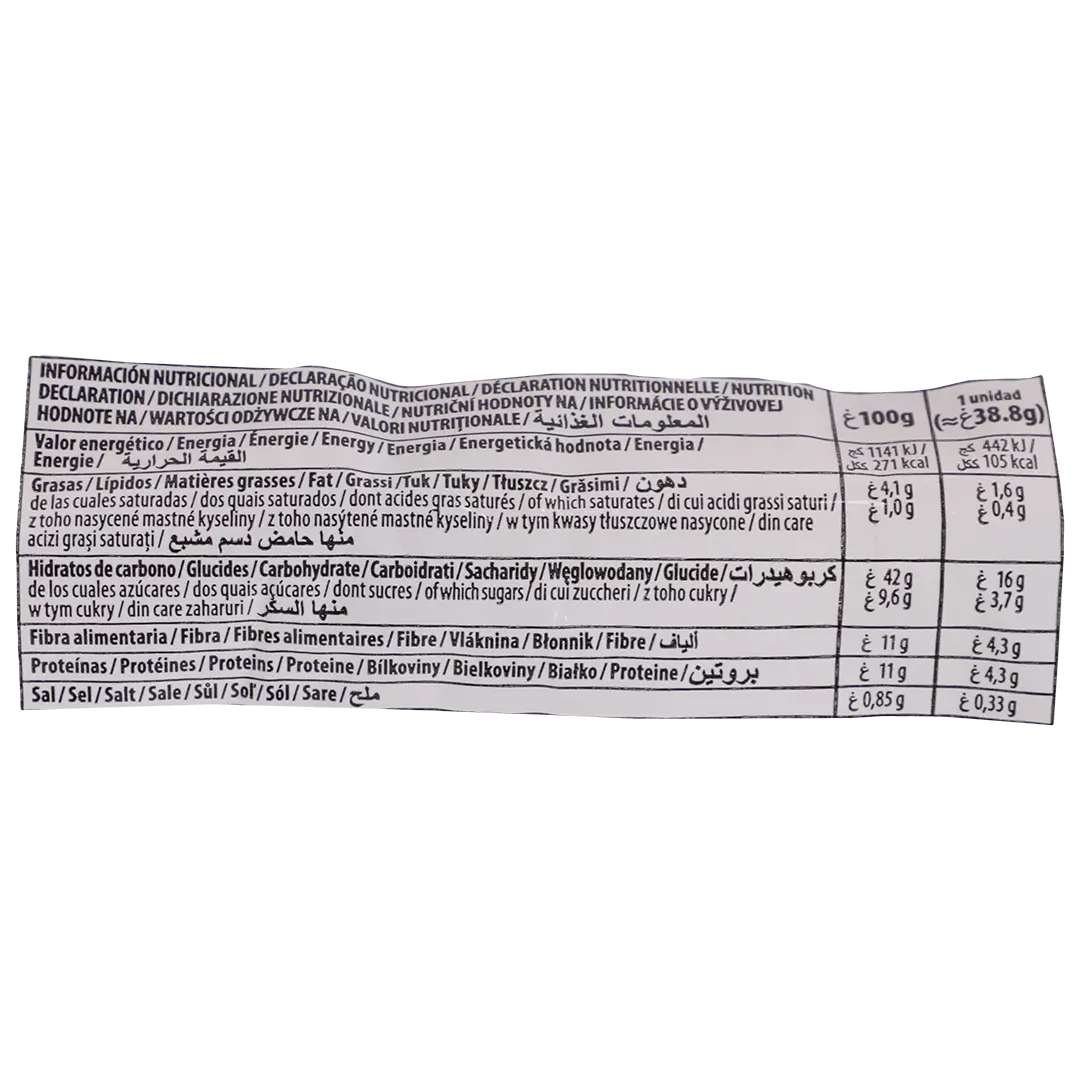 INFORMACIÓN NUTRICIONAL / DECLARAÇÃO NUTRICIONAL / DÉCLARATION NUTRITIONNELLE / NUTRITION
DECLARATION / DICHIARAZIONE NUTRIZIONALE / NUTRIČNÍ HODNOTY NA / INFORMÁCIE O VÝŽIVOVEJ
HODNOTE NA / WARTOŚCI ODŻYWCZE NA / VALORI NUTRIȚIONALE / المعلومات الغذائية
غ 100g
1 unidad
(≈ غ 38.8g)
Valor energético / Energia / Énergie / Energy / Energia / Energetická hodnota / Energia /
Energie / القيمة الحرارية
كج 1141 kJ /
ككل 271 kcal
كج 442 kJ /
ككل 105 kcal
Grasas / Lípidos / Matières grasses / Fat / Grassi / Tuk / Tuky / Tłuszcz / Grăsimi / دهون
de las cuales saturadas / dos quais saturados / dont acides gras saturés / of which saturates / di cui acidi grassi saturi /
z toho nasycené mastné kyseliny / z toho nasýtené mastné kyseliny / w tym kwasy tłuszczowe nasycone / din care
acizi grași saturați / منها حامض دسم مشبع
غ 4,1 g
غ 1,0 g
غ 1,6 g
غ 0,4 g
Hidratos de carbono / Glucides / Carbohydrate / Carboidrati / Sacharidy / Węglowodany / Glucide / كربوهيدرات
de los cuales azúcares / dos quais açúcares / dont sucres / of which sugars / di cui zuccheri / z toho cukry /
w tym cukry / din care zaharuri / منها السكّر
غ 42 g
غ 9,6 g
غ 16 g
غ 3,7 g
Fibra alimentaria / Fibra / Fibres alimentaires / Fibre / Vláknina / Błonnik / Fibre / ألياف
غ 11 g
غ 4,3 g
Proteínas / Protéines / Proteins / Proteine / Bílkoviny / Bielkoviny / Białko / Proteine / بروتين
غ 11 g
غ 4,3 g
Sal / Sel / Salt / Sale / Sůl / Soľ / Sól / Sare / ملح
غ 0,85 g
غ 0,33 g